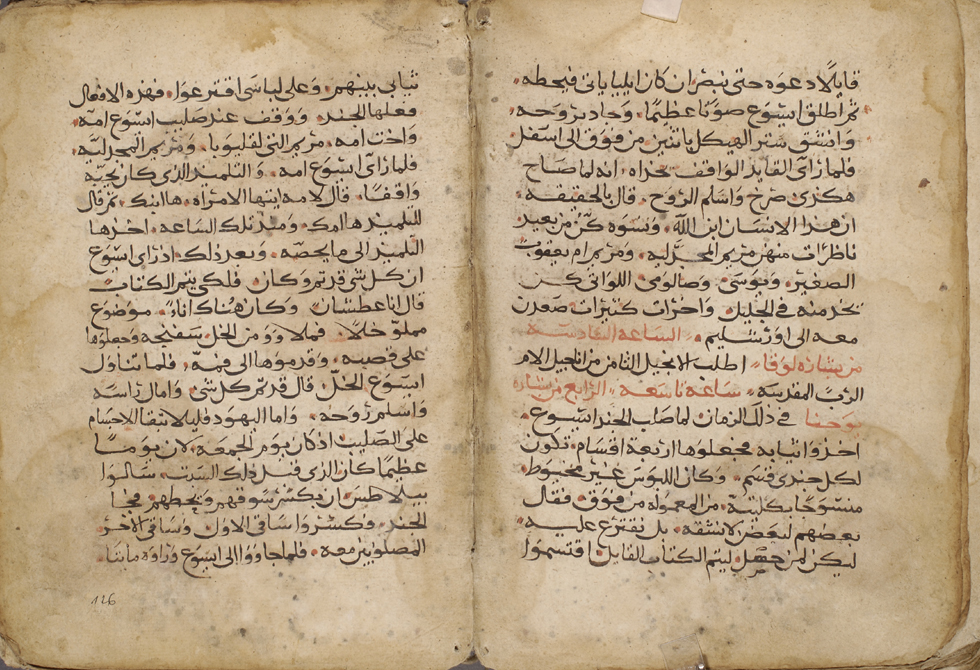 قايلًا دعوه حتى ننظر ان كان ايليا ياتى فيحطه
ثم اطلق ايسوع صوتًا عظيمًا وجاد بروحه
وانشق ستر الهيكل باثنين من فوق الى اسفل
فلما راى القايد الواقف حذاه انه لما صاح
هكذى صرخ واسلم الروح قال بالحقيقه
ان هذا الانسان ابن الله ونسوه كن من بعيد
ناظرات منهن مريم المجدليه ومريم ام يعقوب
الصغير ويوسى وصالومى اللواتى كن
يخدمنه فى الجليل واخرات كثيرات صعدن
معه الى اورشليم الساعه السادسه
من بشاره لوقا اطلب الانجيل الثامن من اناجيل الالام
الرب المقدسه ساعه تاسعه الرابع من بشاره
يوحنا فى ذلك الزمان لما صلب الجند ايسوع
اخذوا ثيابه فجعلوها اربعة اقسام تكون
لكل جندى قسم وكان اللبوس غير مخيوط
منسوجًا بكليته من المعموله من فوق فقال
بعضهم لبعض لا نشقه بل نقترع عليه
ليكن لمن حصل ليتم الكتاب القايل اقتسموا
ثيابى بينهم وعلى لباسى اقترعوا فهذه الافعال
فعلها الجند ووقف عند صليب ايسوع امه
واخت امه مريم التى لقليوبا ومريم المجدليه
فلما راى ايسوع امه والتلميذ الذى كان يحبه
واقفًا قال لامه ايتها الامراه ها ابنك ثم قال
للتلميذ ها امك ومنذ تلك الساعه اخذها
التلميذ الى ما يخصه وبعد ذلك اذ راى ايسوع
ان كل شى قد تم وكان فلكى يتم الكتاب
قال انا عطشان وكان هناك اناء موضوع
مملوّ خلًا فملاووو من الخل سفنجه وجعلوها
على قصبه وقدموها الى فمه فلما تناول
ايسوع الخل قال قد تم كل شى وامال راسه
واسلم روحه واما اليهود فليلا تبقا الاجسام
على الصليب اذ كان يوم الجمعه لان يومًا
عظيمًا كان الذى قبل ذلك السبت سالوا
بيلاطس ان يكسر سوقهم ويحطهم فجا
الجند وكسروا ساقى الاول وساقى الاخر
المصلوبين معه فلما جاووا الى ايسوع وراوه مايتا
126